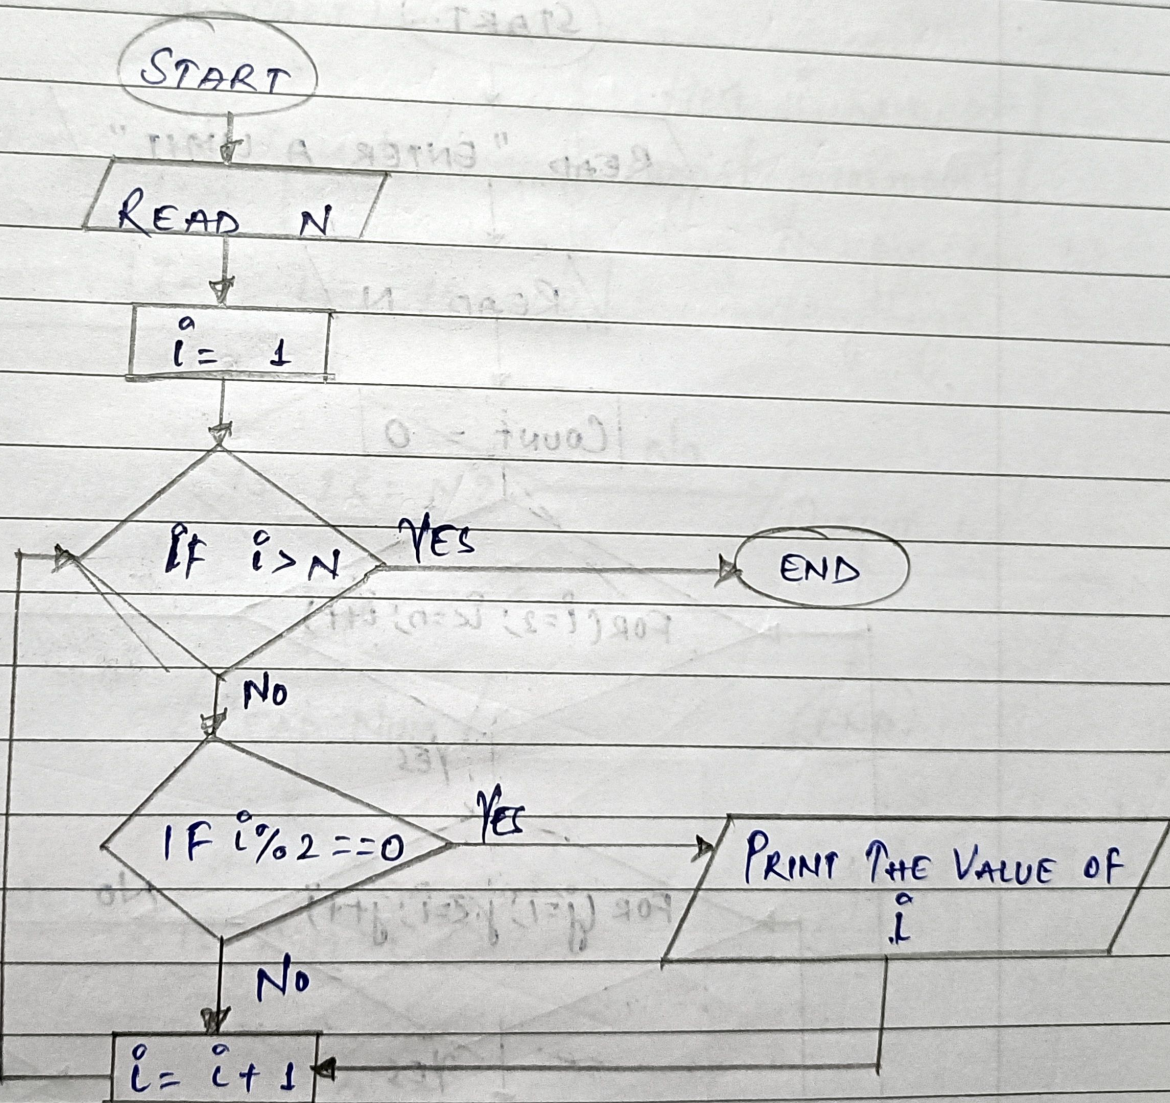 START
READ N
i = 1
IF i > N
YES
END
NO
IF i % 2 == 0
YES
PRINT THE VALUE OF
i
NO
i = i + 1